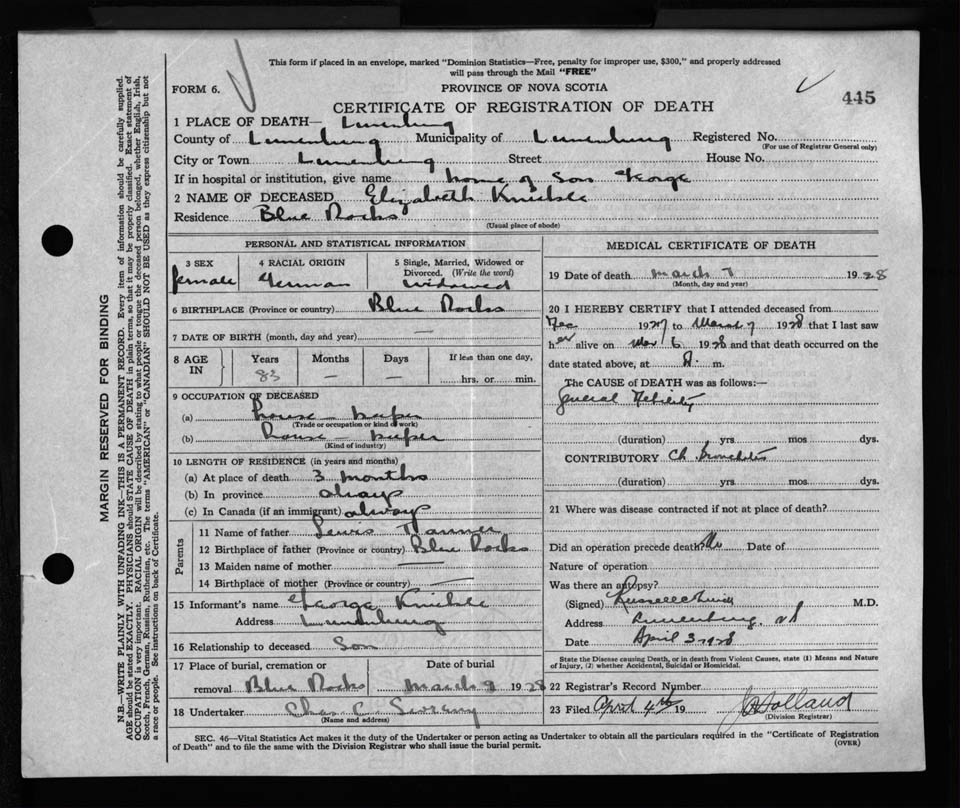 This form if placed in an envelope, marked "Dominion Statistics—Free, penalty for improper use, $300," and properly addressed
will pass through the Mail "FREE"
FORM 6.
PROVINCE OF NOVA SCOTIA
445
CERTIFICATE OF REGISTRATION OF DEATH
1 PLACE OF DEATH— Lunenburg
County of Lunenburg Municipality of Lunenburg Registered No.
(For use of Registrar General only)
City or Town Lunenburg Street House No.
If in hospital or institution, give name home of Son George
2 NAME OF DECEASED Elizabeth Knickle
Residence Blue Rocks
(Usual place of abode)
PERSONAL AND STATISTICAL INFORMATION
3 SEX 4 RACIAL ORIGIN 5 Single, Married, Widowed or
Divorced. (Write the word)
female German widowed
6 BIRTHPLACE (Province or country) Blue Rocks
7 DATE OF BIRTH (month, day and year) —
8 AGE IN Years Months Days If less than one day,
83 — — hrs. or min.
9 OCCUPATION OF DECEASED
(a) house-keeper
(Trade or occupation or kind of work)
(b) house-keeper
(Kind of industry)
10 LENGTH OF RESIDENCE (in years and months)
(a) At place of death 3 months
(b) In province always
(c) In Canada (if an immigrant) always
Parents
11 Name of father Lewis Tanner
12 Birthplace of father (Province or country) Blue Rocks
13 Maiden name of mother —
14 Birthplace of mother (Province or country) —
15 Informant's name George Knickle
Address Lunenburg
16 Relationship to deceased Son
17 Place of burial, cremation or Date of burial
removal Blue Rocks March 9 1928
18 Undertaker Chas. C.
(Name and address)
MEDICAL CERTIFICATE OF DEATH
19 Date of death March 7 1928
(Month, day and year)
20 I HEREBY CERTIFY that I attended deceased from
1927 to March 7 1928 that I last saw
her alive on Mar 6 1928 and that death occurred on the
date stated above, at A. m.
The CAUSE of DEATH was as follows:—
General Debility
(duration) yrs. mos. dys.
CONTRIBUTORY Ch Bronchitis
(duration) yrs. mos. dys.
21 Where was disease contracted if not at place of death?
Did an operation precede death? No Date of
Nature of operation
Was there an autopsy?
(Signed) M.D.
Address Lunenburg, NS
Date April 3 1928
State the Disease causing Death, or in death from Violent Causes, state (1) Means and Nature
of Injury, (2) whether Accidental, Suicidal or Homicidal.
22 Registrar's Record Number
23 Filed April 4th 19 Holland
(Division Registrar)
SEC. 46—Vital Statistics Act makes it the duty of the Undertaker or person acting as Undertaker to obtain all the particulars required in the "Certificate of Registration
of Death" and to file the same with the Division Registrar who shall issue the burial permit.
(OVER)
MARGIN RESERVED FOR BINDING
N.B.—WRITE PLAINLY WITH UNFADING INK—THIS IS A PERMANENT RECORD. Every item of information should be carefully supplied.
AGE should be stated EXACTLY. PHYSICIANS should STATE CAUSE OF DEATH in plain terms, so that it may be properly classified. Exact statement of
OCCUPATION is very important. RACIAL ORIGIN will be described by stating to what people or tongue the deceased person belonged, whether English, Irish,
Scotch, French, German, Russian, Ruthenian, etc. The terms "AMERICAN" or "CANADIAN" SHOULD NOT BE USED as they express citizenship but not
a race or people. See instructions on back of Certificate.